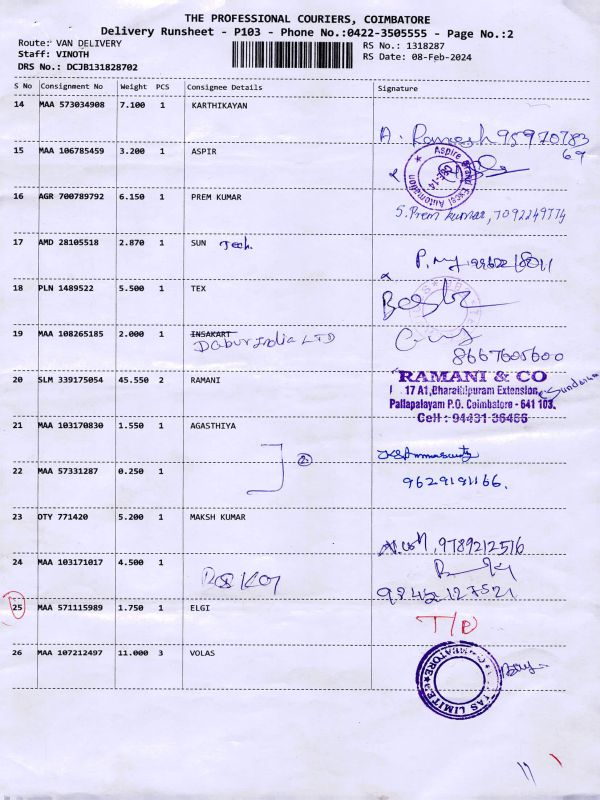 THE PROFESSIONAL COURIERS, COIMBATORE
Delivery Runsheet - P103 - Phone No.:0422-3505555 - Page No.:2
Route: VAN DELIVERY RS No.: 1318287
Staff: VINOTH RS Date: 08-Feb-2024
DRS No.: DCJB131828702
S No Consignment No Weight PCS Consignee Details Signature
14 MAA 573034908 7.100 1 KARTHIKAYAN
A. Ramesh 95970783
69
15 MAA 106785459 3.200 1 ASPIR
16 AGR 700789792 6.150 1 PREM KUMAR
S. Prem kumar, 7092249774
17 AMD 28105518 2.870 1 SUN Tech.
18 PLN 1489522 5.500 1 TEX
19 MAA 108265185 2.000 1 INSAKART
Dabur India LTD
8667605600
20 SLM 339175054 45.550 2 RAMANI
RAMANI & CO
17 A1,Bharathipuram Extension,
Pallapalayam P.O. Coimbatore - 641 103.
Cell : 94431 36466
21 MAA 103170830 1.550 1 AGASTHIYA
2
22 MAA 57331287 0.250 1
9629191166.
23 OTY 771420 5.200 1 MAKSH KUMAR
9789212516
24 MAA 103171017 4.500 1
9842127521
25 MAA 571115989 1.750 1 ELGI
T/D
26 MAA 107212497 11.000 3 VOLAS